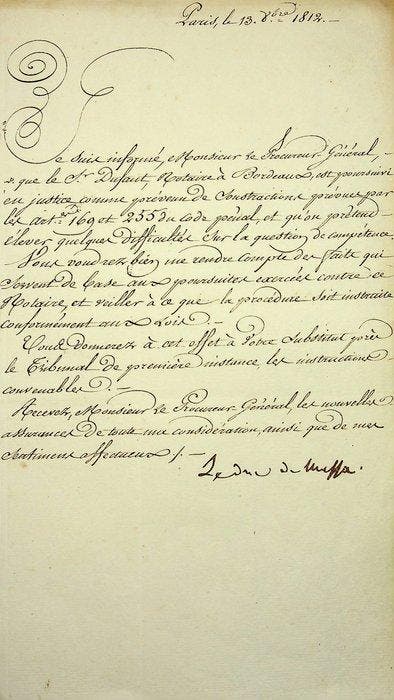 Paris, le 13. 8.bre 1812.
Je suis informé, Monsieur le Procureur Général,
que le S.r Dufaut, Notaire à Bordeaux, est poursuivi
en justice comme prévenu de soustractions prévues par
les Art.es 169 et 255 du Code pénal, et qu'on prétend
élever quelques difficultés sur la question de compétence
Vous voudrez bien me rendre compte des faits qui
servent de base aux poursuites exercées contre ce
Notaire, et veiller à ce que la procédure soit instruite
conformément aux Lois.
Vous donnerez à cet effet à Votre Substitut près
le Tribunal de première instance, les instructions
convenables.
Recevez, Monsieur le Procureur Général, les nouvelles
assurances de toute ma considération, ainsi que de mes
sentimens affectueux /. —
Le duc de Massa.